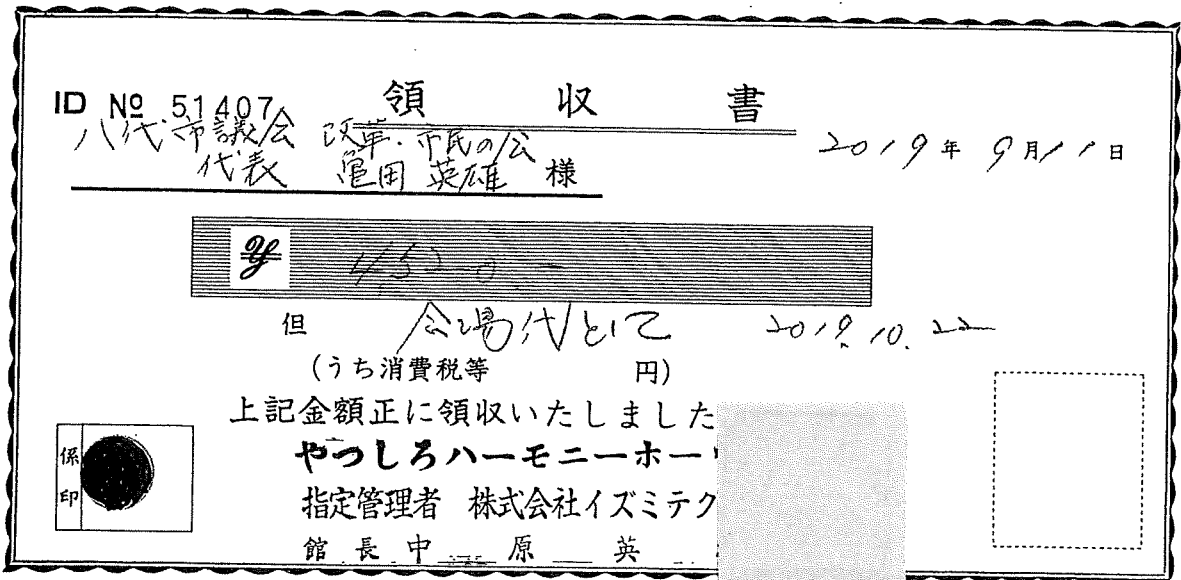 ID № 51407 領収書
八代市議会 改革・市民の会
代表 亀田 英雄 様
2019年 9月11日
¥ 4,520.-
但 会場代として 2019.10.22
(うち消費税等 円)
上記金額正に領収いたしました
やつしろハーモニーホー
指定管理者 株式会社イズミテク
館長 中原 英
係印